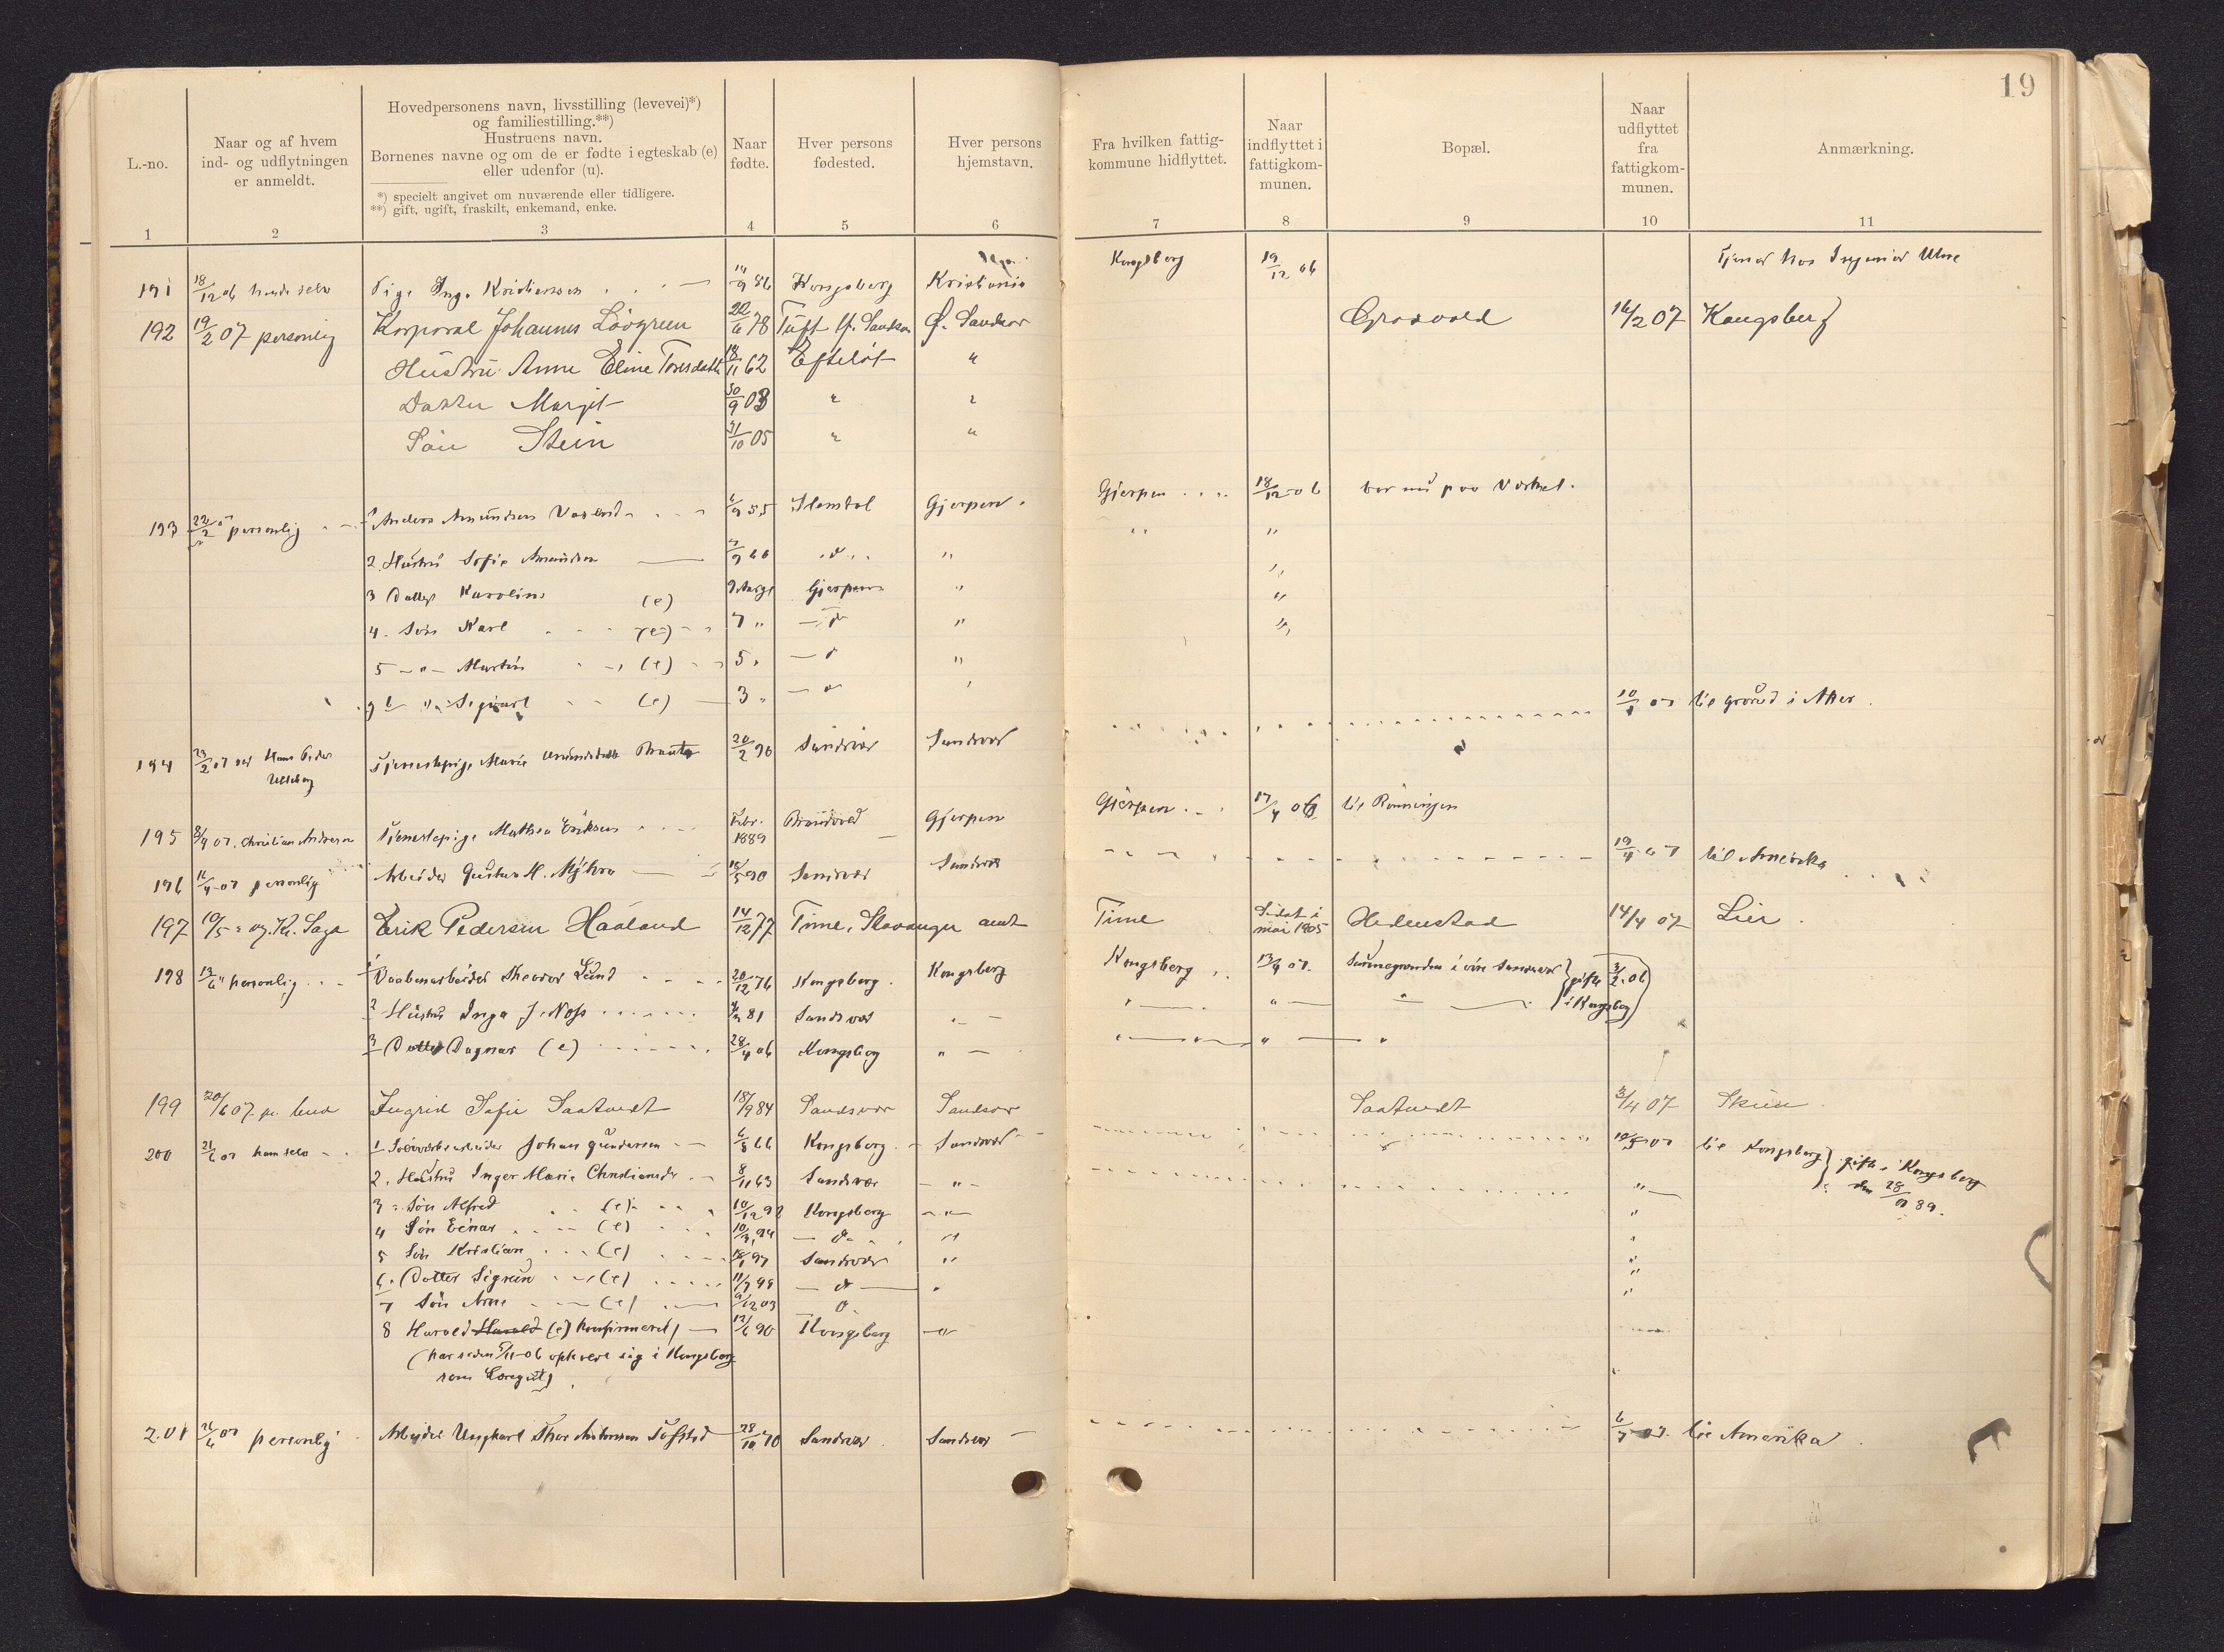 19
L.-no.
Naar og af hvem
ind- og udflytningen
er anmeldt.
Hovedpersonens navn, livsstilling (levevei)*)
og familiestilling.**)
Hustruens navn.
Børnenes navne og om de er fødte i egteskab (e)
eller udenfor (u).
*) specielt angivet om nuværende eller tidligere.
**) gift, ugift, fraskilt, enkemand, enke.
Naar
fødte.
Hver persons
fødested.
Hver persons
hjemstavn.
Fra hvilken fattig-
kommune hidflyttet.
Naar
indflyttet i
fattigkom-
munen.
Bopæl.
Naar
udflyttet
fra
fattigkom-
munen.
Anmærkning.
1 2 3 4 5 6 7 8 9 10 11
191 18/12 06 hende selv Pige Inga Kristiansen 14/9 86 Kongsberg Kristiania Kongsberg 19/12 06 Tjener hos Ingeniør
192 19/2 07 personlig Korporal Johannes Lövgreen 22/6 78 Tuft Sandsvær Ø. Sandsvær Grosvold 16/2 07 Kongsberg
Hustru Anne Eline Toresdatter 18/11 62 Efteløt "
Datter Margit 30/9 03 " "
Søn Stein 31/10 05 " "
193 22/2 07 personlig 1 Anders Amundsen 55 Slemdal Gjerpen Gjerpen 18/12 06 bor nu paa Verket.
2. Hustru Sofie Amundsen "
3 Datter Karoline (e) 9 Aar gl Gjerpen "
4. Søn Karl (e) 7 " "
5 Martin (e) 5 " "
Sigvart (e) 3 "
194 23/2 07 Hans Peder Tjenestepige Marie 20/2 90 Sandsvær Sandsvær 10/4 07 til Grorud i Aker.
195 8/4 07. Christian Andersen Tjenestepige Mathea Eriksen Febr. 1889 Gjerpen Gjerpen 17/4 06 til Rønningen
196 11/4 07 personlig Arbeider Gustav H. Myhra 15/5 90 Sandsvær Sandsvær 19/4 07 til Amerika
197 10/5 " og. K. Saga Erik Pedersen Haaland 14/12 77 Time, Stavanger amt Time Sidst i mai 1905 Hedenstad 14/4 07 Lier.
198 19/6 " personlig 1 Vaabenarbeider Theodor Lund 20/12 76 Kongsberg Kongsberg Kongsberg 13/4 07. i øvre Sandsvær gifte 3/2 06 i Kongsberg
2 Hustru Inga J. Moss 81 Sandsvær
3 Datter Dagmar (e) 28/4 06 Kongsberg "
199 20/6 07 Ingrid Sofie Saatvedt 18/9 84 Sandsvær Sandsvær Saatvedt 3/4 07 Skien.
200 21/6 07 ham selv 1. Sølvverksarbeider Johan Gundersen 6/8 66 Kongsberg Sandsvær 10/5 07 til Kongsberg gifte i Kongsberg
den 28/ 89.
2. Hustru Inger Marie Christiansdr 8/11 63 Sandsvær "
3 Søn Alfred (e) 10/12 92 Kongsberg "
4 Søn Einar (e) 94 "
5 Søn Kristian (e) 18/1 97 Sandsvær "
6. Datter Sigrun (e) 11/7 99 "
7 Søn Arne (e) 9/12 03 "
8 Harald Harald (e) konfirmeret) 12/6 90 Kongsberg "
(har siden 5/11 06 opholdt sig i Kongsberg
som Læregut)
201 26/6 07 personlig Arbeider Ungkarl Thor Tufsted 28/10 70 Sandsvær. Sandsvær 6/7 07. til Amerika.